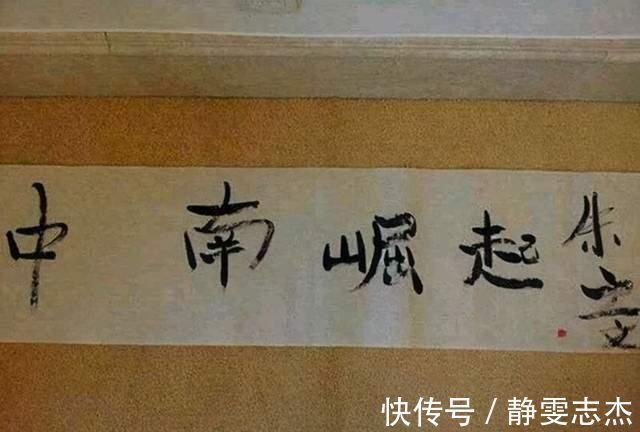 中南崛起
朱之文
快传号 / 静雯志杰